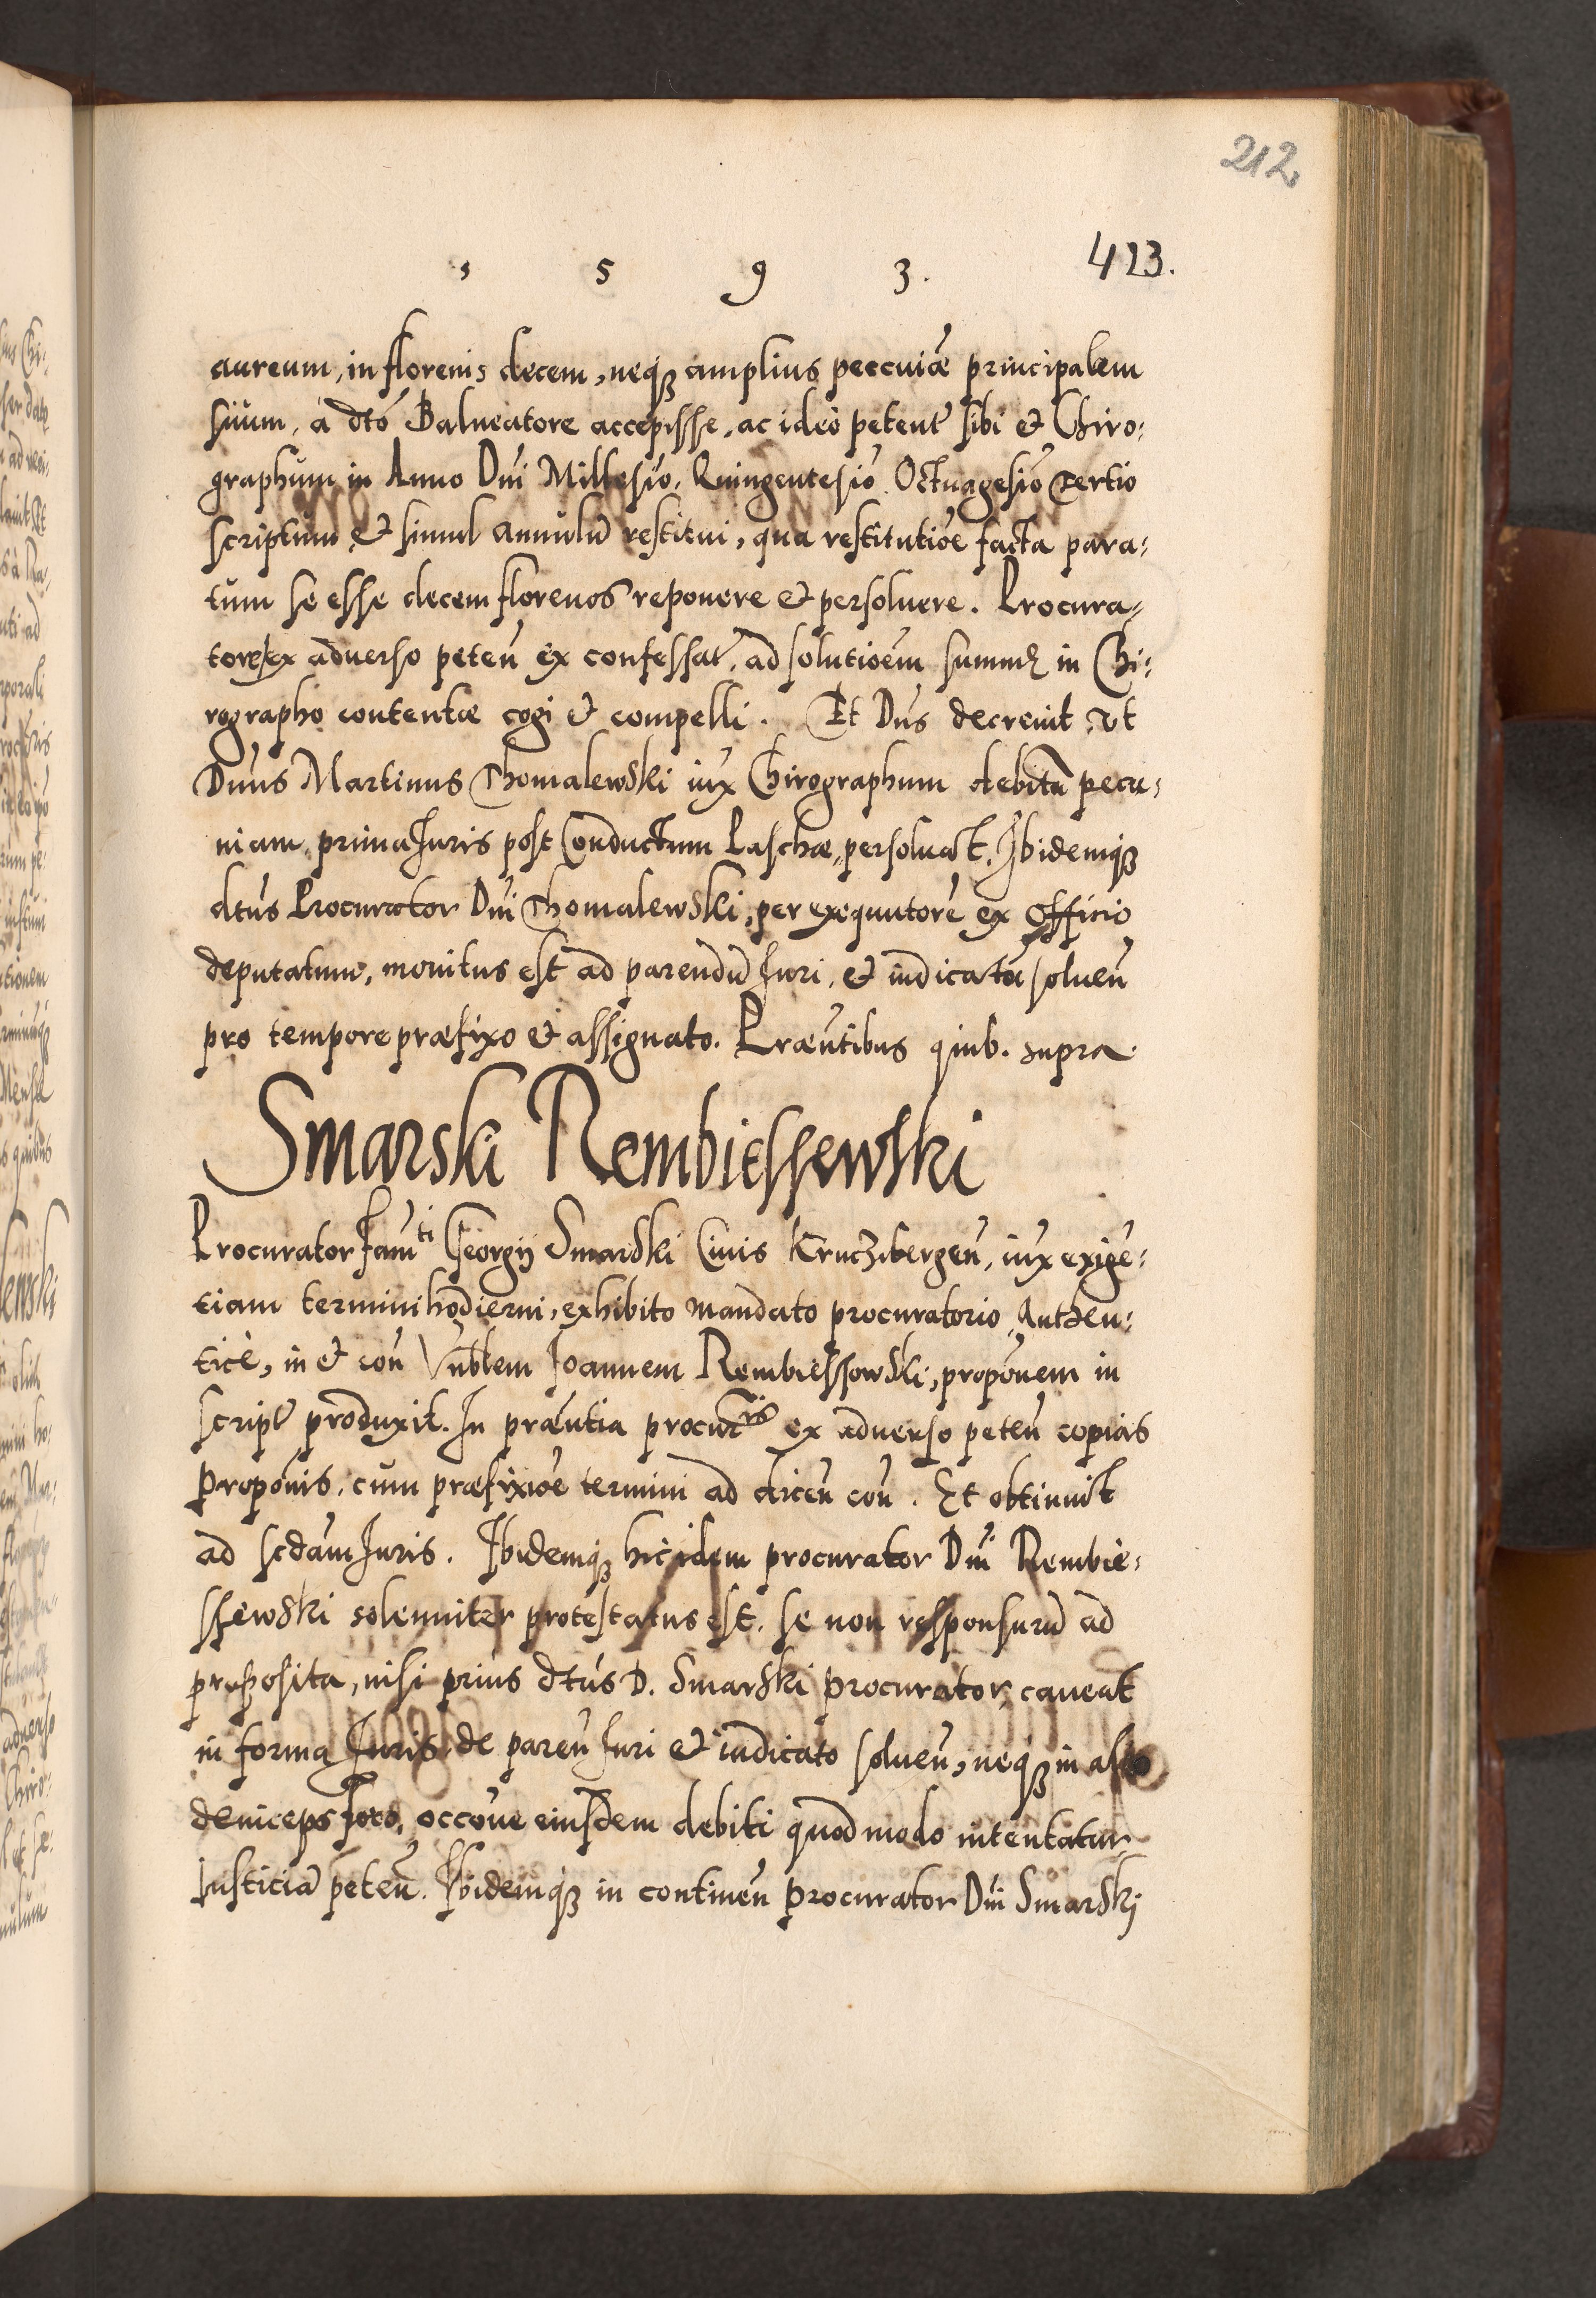 212
1 5 9 3. 423.
aureum, in florenis decem, neqȝ amplius peccuiæ principalem
suum, à dtó Balneatore accepisse, ac ideò petent sibi & Chiro:
graphum in Anno Dni Millesīo, Quingentesīo Octuagesīo tertio
scriptum, & simul annulū restitui, qua restitutiōe facta para:
tum se esse decem florenos reponere & persoluere. Procura:
tore ex aduerso peteñ ex confessat, ad solutioēm summȩ in Chi:
rographo contentæ cogi & compelli. Et Dns decreuit, vt
Dnus Martinus Thomalewski iux Chirographum debitā pecu:
niam, prima Iuris post Conductum Paschæ, persoluat. Ibidemqȝ
dtus Procurator Dni Thomalewski, per exequutorē ex officio
deputatum, monitus est ad parendū Iuri, & iudicatū solueñ
pro tempore præfixo & assignato. Præntibus quib. supra.
Smarski Rembiessewski
Procurator Famti Georgij Smarski Ciuis Kruczbergeñ, iux exigē:
tiam termini hodierni, exhibito mandato procuratorio Authen:
ticè, in & coñ Vnblem Ioannem Rembiessowski, propōnem in
script produxit. In præntia procuris ex aduerso peteñ copias
propōnis, cum præfixiōe termini ad diceñ coñ. Et obtinuit
ad scdam Iuris. Ibidemqȝ hic idem procurator Dni Rembie:
ssewski solenniter protestatus est, se non responsurū ad
proposita, nisi prius dtus D. Smarski procurator caueat
in forma Iuris de pareñ Iuri & iudicato solueñ, neqȝ in alio
deinceps foro, occōne eiusdem debiti quodmodo intentatur
Iusticiā peteñ. Ibidemqȝ in contineñ procurator Dni Smarskj